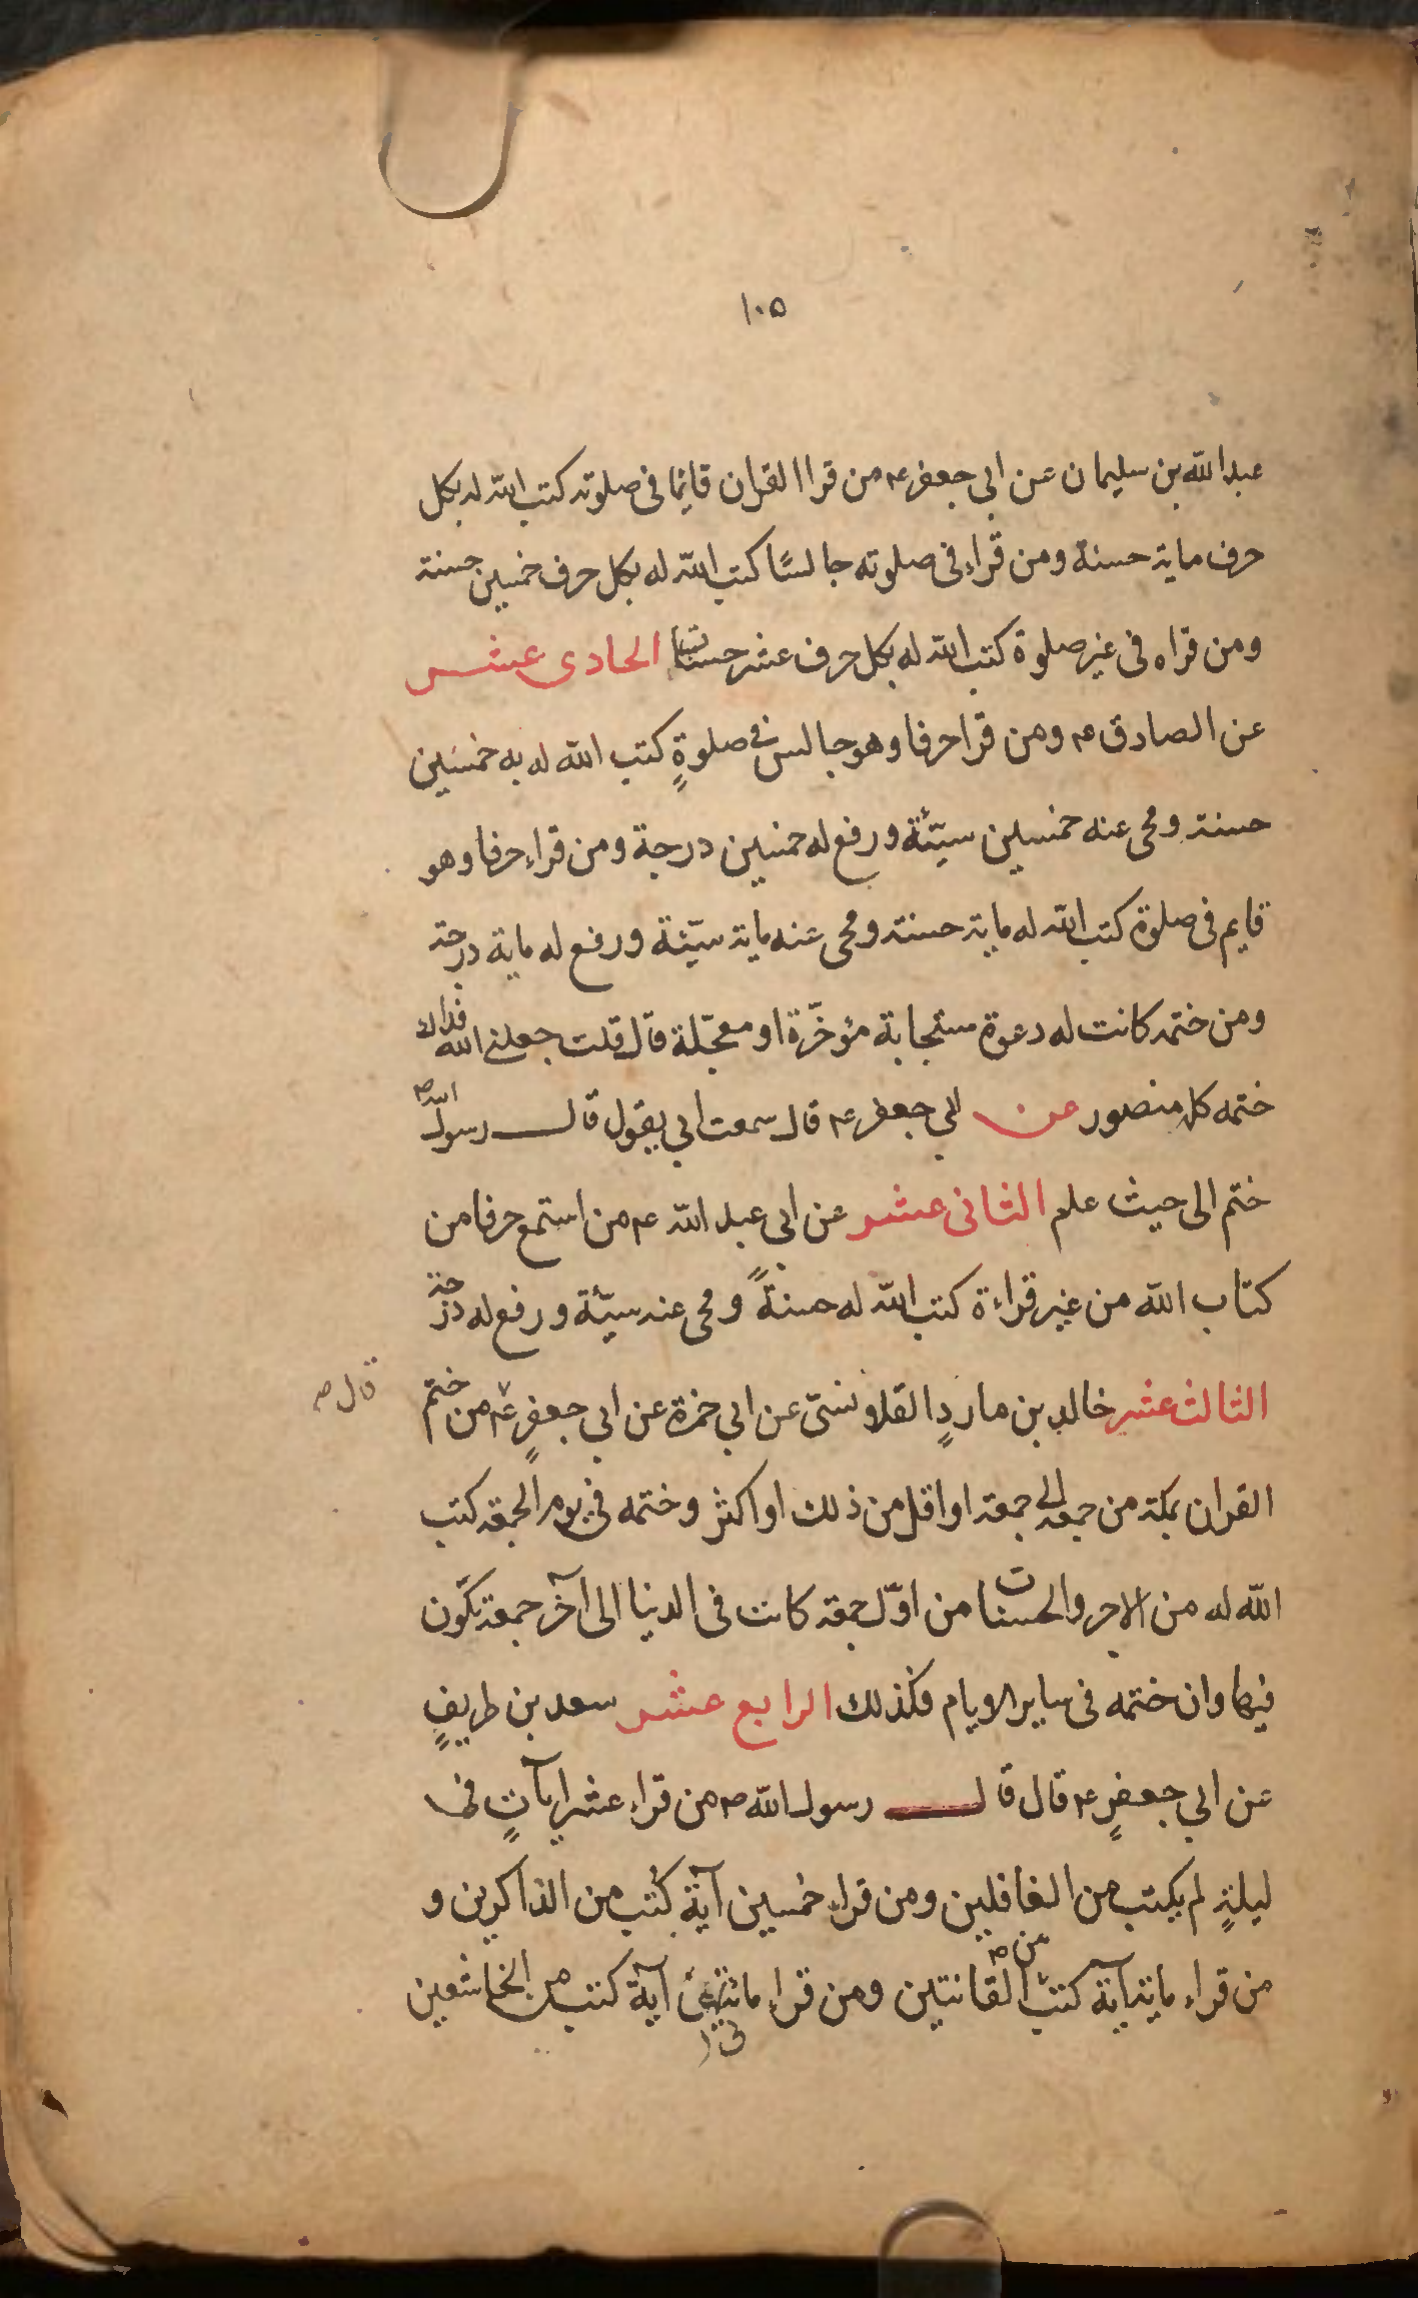 ١٠٥
عبد الله بن سليمان عن ابي جعفر ع من قرا القران قائما في صلوته كتب الله له بكل
حرف ماية حسنة ومن قراء في صلوته جالسًا كتب الله له بكل حرف خمسين حسنة
ومن قراه في غير صلوة كتب الله له بكل حرف عشر حسنات الحادى عشر
عن الصادق ع ومن قرا حرفا وهو جالس في صلوةٍ كتب الله له به خمسين
حسنة ومحى عنه خمسين سيّئة ورفع له خمسين درجة ومن قراء حرفا وهو
قايم في صلوة كتب الله له ماية حسنة ومحى عنه ماية سيّئة ورفع له ماية درجة
ومن ختمه كانت له دعوة مستجابة مؤخّرة او معجّلة قال قلت جعلني الله فداك
ختمه كله منصور عن ابي جعفر ع قال سمعت ابي يقول قال رسول الله ص
ختم الى حيث علم الثانى عشر عن ابي عبد الله ع من استمع حرفا من
كتاب الله من غير قراءة كتب الله له حسنةً ومحى عنه سيّئة ورفع له درجة
الثالث عشر خالد بن ماردٍ القلانسىّ عن ابي حمزة عن ابي جعفرٍ ع من ختم
قال ص
القران بمكة من جمعة الى جمعة او اقل من ذلك او اكثر وختمه في يوم الجمعة كتب
الله له من الاجر والحسنات من اوّل جمعة كانت في الدنيا الى آخر جمعة تكون
فيها وان ختمه في ساير الايام فكذلك الرابع عشر سعد بن طريفٍ
عن ابي جعفرٍ ع قال قال رسول الله ص من قراء عشر اياتٍ في
ليلةٍ لم يكتب من الغافلين ومن قراء خمسين آية كُتب من الذاكرين و
من قراء ماية آية كتب من القانتين ومن قراء مائتى آية كتب من الخاشعين